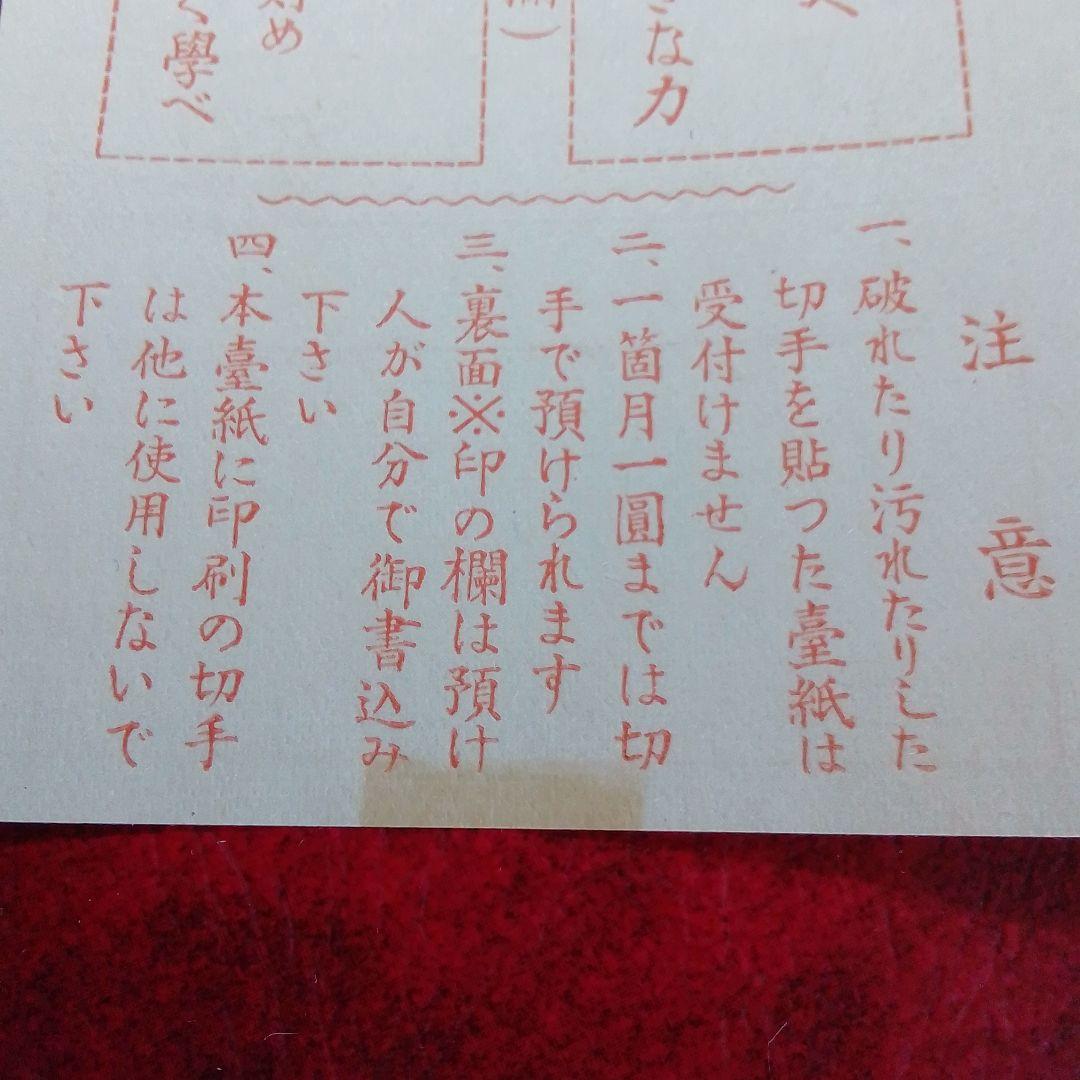 きな力
)
め
く學べ
注意
一、破れたり汚れたりした
切手を貼つた臺紙は
受付けません
二、一箇月一圓までは切
手で預けられます
三、裏面※印の欄は預け
人が自分で御書込み
下さい
四、本臺紙に印刷の切手
は他に使用しないで
下さい